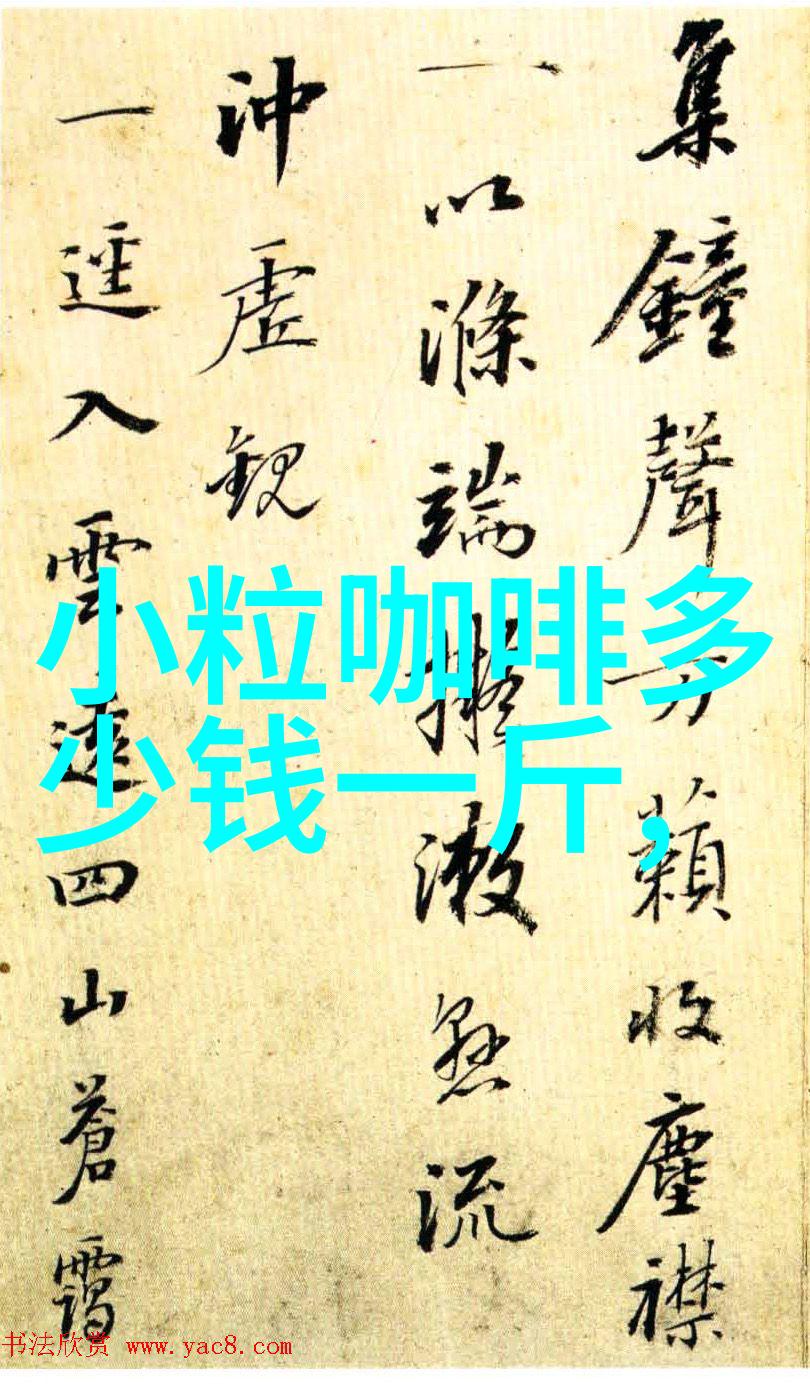 集鐘聲萬籟收塵襟
一以滌端擬漱懸流
沖虛觀
一逕入雲遠四山蒼靄
小粒咖啡多
少钱一斤,
书法欣赏 www.yac8.com